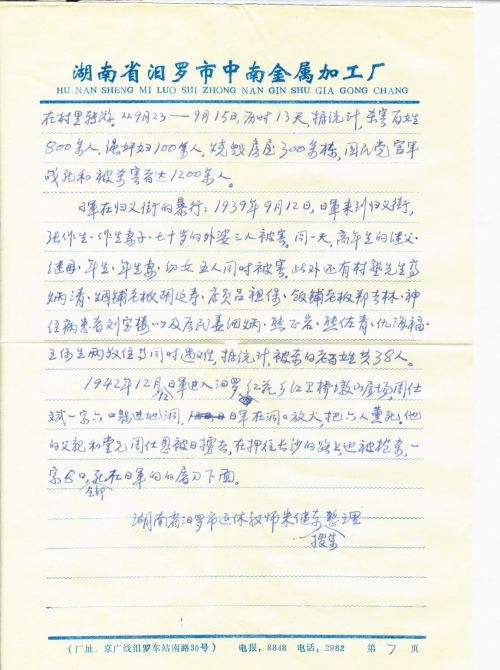 湖南省汨罗市中南金属加工厂
HU NAN SHENG MI LUO SHI ZHONG NAN GIN SHU GIA GONG CHANG
在村里转游。从9月23——9月15日，历时13天，据统计，杀害百姓
800余人，遭奸妇100余人，烧毁房屋300余栋，国民党官军
战死和被杀害者达1200余人。
日军在归义街的暴行：1939年9月12日，日军来到归义街，
张作生、作生妻子、七十岁的外婆三人被害。同一天，高年生的继父、
继母、年生、年生妻、幼女五人同时被害。此外还有村塾先生
炳清、烟铺老板胡延寿、店员吕祖保、饭铺老板郑吉林、神
经病患者刘官楼以及居民姜细炳、熊正岩、熊佐青、仇海福、
王伟生两数位共同时遇难，据统计，被杀的老百姓共38人。
1942年12月，日军进入汨罗，红花乡红卫桥墩山屋场周仕
斌一家六口躲进地洞，日军在洞口放火，把六人薰死。他
的父亲和堂兄周仕恩被日掳去，在押往长沙的路上也被枪杀，一
家8口，全部死在日军的的屠刀下面。
湖南省汨罗市退休教师朱健东搜集整理
（厂址：京广线汨罗车站南路30号） 电报：8848 电话：2982 第7页